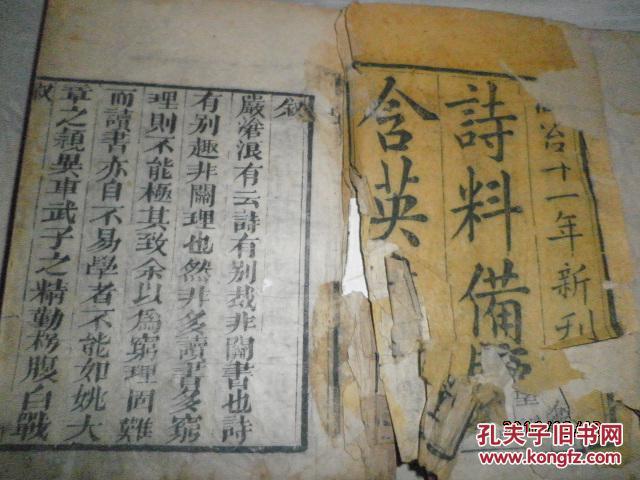 治十一年新刊
詩料備
含英
叙
嚴滄浪有云詩有別裁非關書也詩
有別趣非關理也然非多讀書多窮
理則不能極其致余以為窮理固難
而讀書亦自不易學者不能如姚大
章之穎異車武子之精勤枵腹白戰
叙
孔夫子旧书网
www.kongfz.com